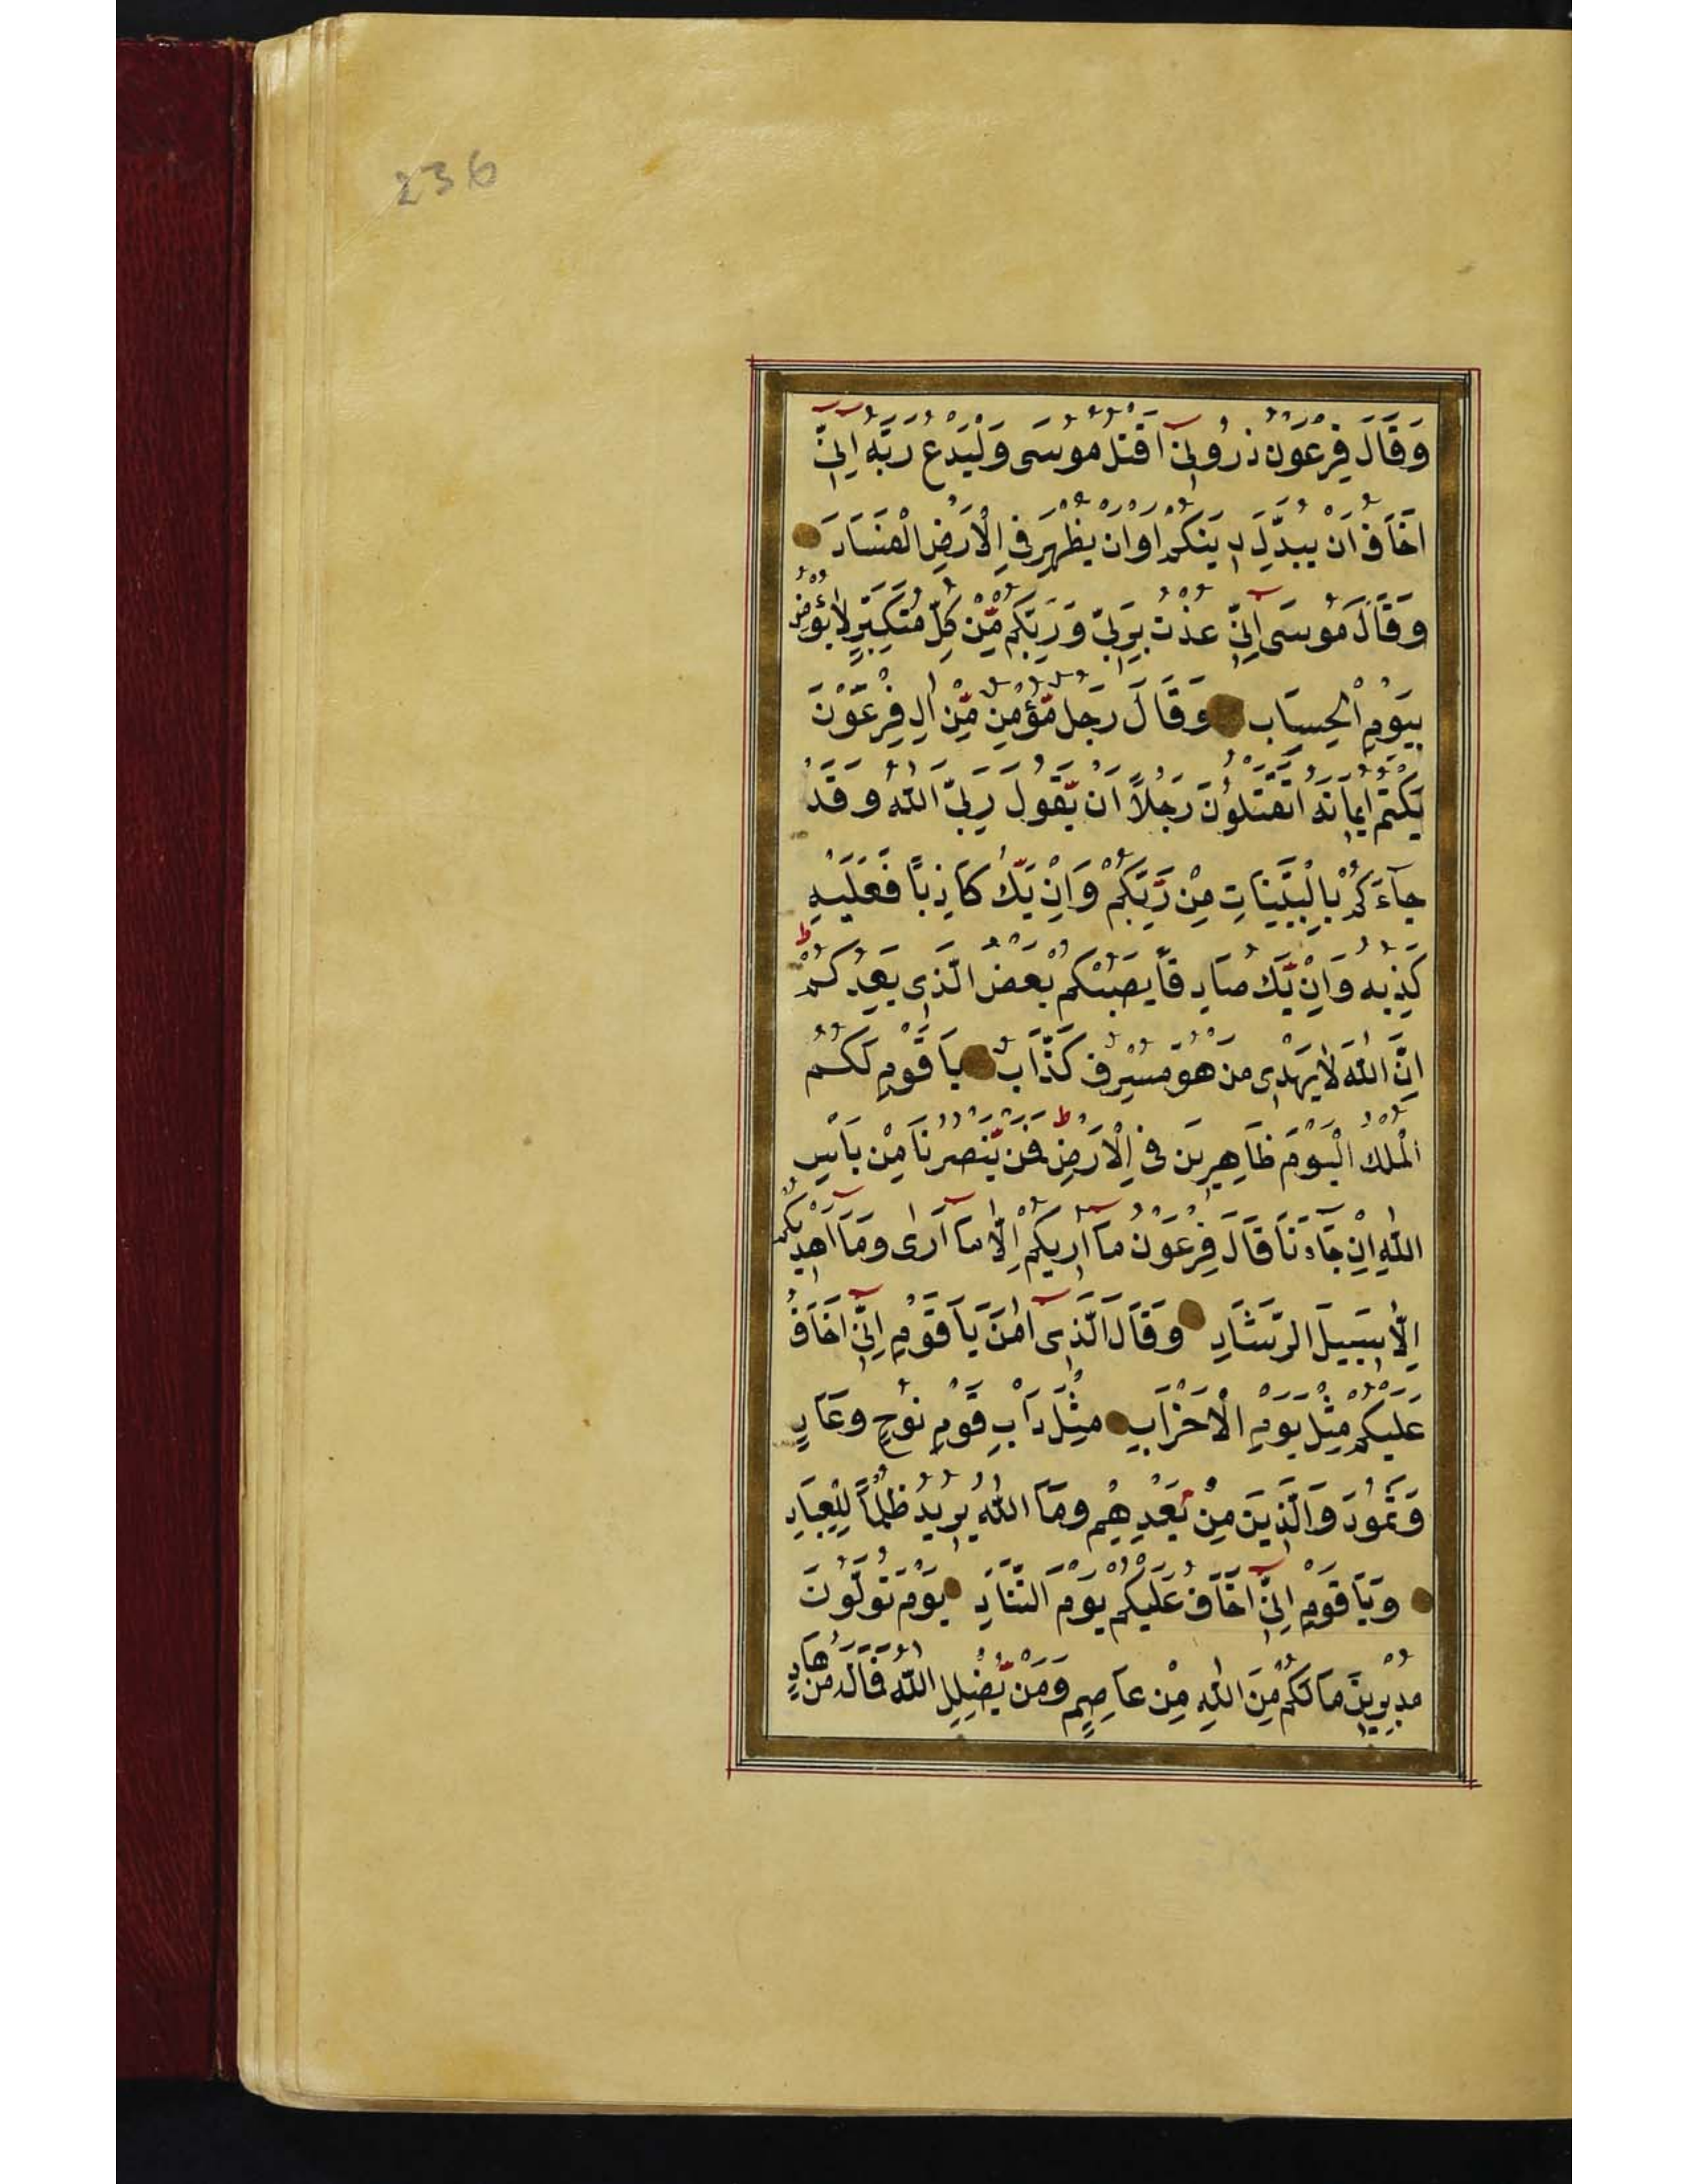 236
وَقَالَ فِرْعَوْنُ ذَرُونِیٓ اَقْتُلْ مُوسَی وَلْيَدْعُ رَبَّهُ اِنِّیٓ
اَخَافُ اَنْ يُبَدِّلَ دِينَكُمْ اَوْ اَنْ يُظْهِرَ فِی الْاَرْضِ الْفَسَادَ
وَقَالَ مُوسَی اِنِّیٓ عُذْتُ بِرَبِّی وَرَبِّكُمْ مِّنْ كُلِّ مُتَكَبِّرٍ لَا يُؤْمِنُ
بِيَوْمِ الْحِسَابِ وَقَالَ رَجُلٌ مُّؤْمِنٌ مِّنْ اٰلِ فِرْعَوْنَ
يَكْتُمُ اِيمَانَهُ اَتَقْتُلُونَ رَجُلًا اَنْ يَّقُولَ رَبِّیَ اللّٰهُ وَقَدْ
جَآءَكُمْ بِالْبَيِّنَاتِ مِنْ رَّبِّكُمْ وَاِنْ يَّكُ كَاذِبًا فَعَلَيْهِ
كَذِبُهُ وَاِنْ يَّكُ صَادِقًا يُصِبْكُمْ بَعْضُ الَّذِی يَعِدُكُمْ ط
اِنَّ اللّٰهَ لَا يَهْدِی مَنْ هُوَ مُسْرِفٌ كَذَّابٌ يَا قَوْمِ لَكُمُ
الْمُلْكُ الْيَوْمَ ظَاهِرِينَ فِی الْاَرْضِ ط فَمَنْ يَّنْصُرُنَا مِنْ بَاْسِ
اللّٰهِ اِنْ جَاءَنَا قَالَ فِرْعَوْنُ مَآ اُرِيكُمْ اِلَّا مَآ اَرٰی وَمَآ اَهْدِيكُمْ
اِلَّا سَبِيلَ الرَّشَادِ وَقَالَ الَّذِیٓ اٰمَنَ يَا قَوْمِ اِنِّیٓ اَخَافُ
عَلَيْكُمْ مِثْلَ يَوْمِ الْاَحْزَابِ مِثْلَ دَاْبِ قَوْمِ نُوحٍ وَعَادٍ
وَثَمُودَ وَالَّذِينَ مِنْ بَعْدِهِمْ وَمَا اللّٰهُ يُرِيدُ ظُلْمًا لِلْعِبَادِ
وَيَا قَوْمِ اِنِّیٓ اَخَافُ عَلَيْكُمْ يَوْمَ التَّنَادِ يَوْمَ تُوَلُّونَ
مُدْبِرِينَ مَا لَكُمْ مِنَ اللّٰهِ مِنْ عَاصِمٍ وَمَنْ يُّضْلِلِ اللّٰهُ فَمَا لَهُ مِنْ هَادٍ